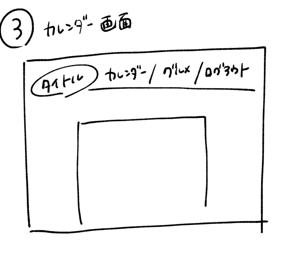 ③ カレンダー画面
タイトル カレンダー/グルメ/ログアウト